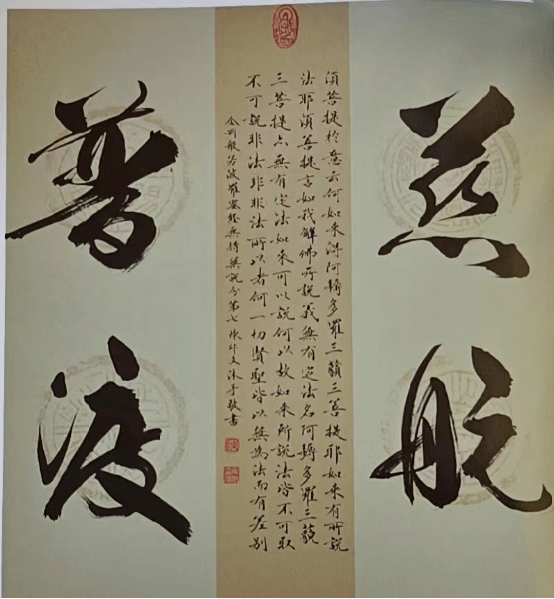 慈航
須菩提於意云何如来得阿耨多羅三藐三菩提耶如来有所說
法耶須菩提言如我解佛所說義無有定法名阿耨多羅三藐
三菩提亦無有定法如来可以說何以故如来所說法皆不可取
不可說非法非非法所以者何一切賢聖皆以無為法而有差别
金剛般若波羅蜜經無得無說分第七 沐手敬書
普渡